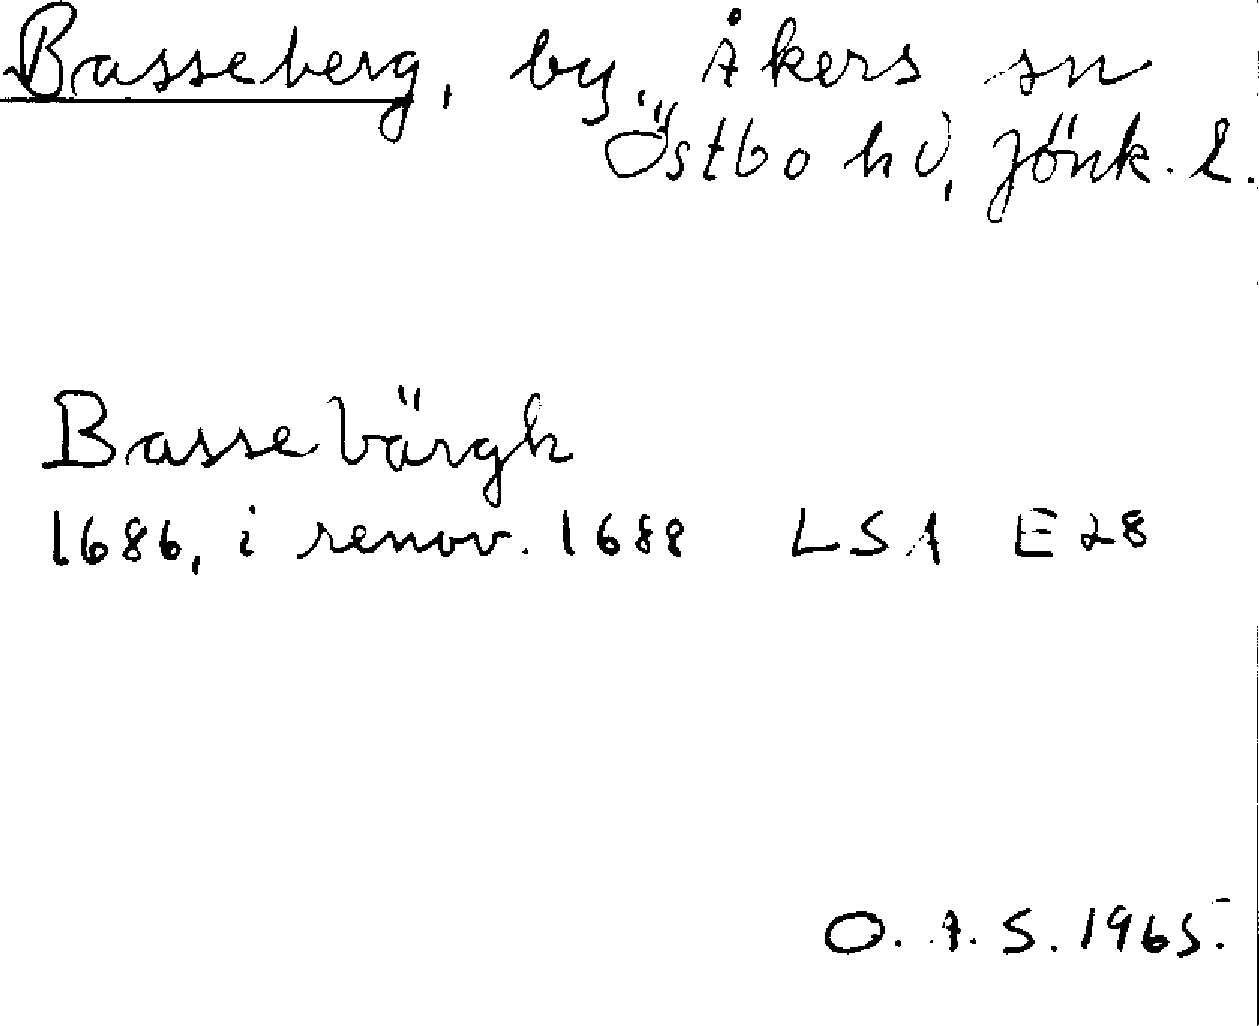 Basseberg, by, Åkers sn
Östbo hd, Jönk. l.
Bassebärgh
1686, i renov. 1688 LSA E28
O.A.S. 1965.